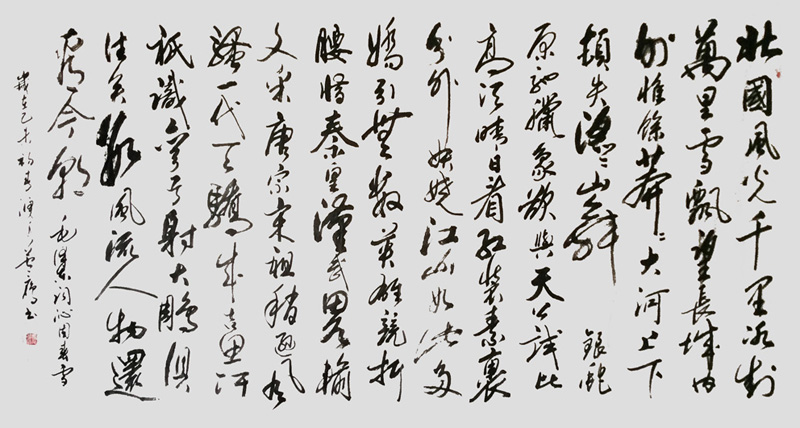 北國風光千里冰封
萬里雪飄望長城內
外惟餘莽〻大河上下
頓失滔〻山舞銀蛇
原馳臘象欲與天公試比
高須晴日看紅裝素裹
分外妖嬈江山如此多
嬌引無數英雄競折
腰惜秦皇漢武略輸
文采唐宗宋祖稍遜風
騷一代天驕成吉思汗
祇識彎弓射大鵰俱
往矣數風流人物還
看今朝
毛澤東詞沁園春雪
歲在